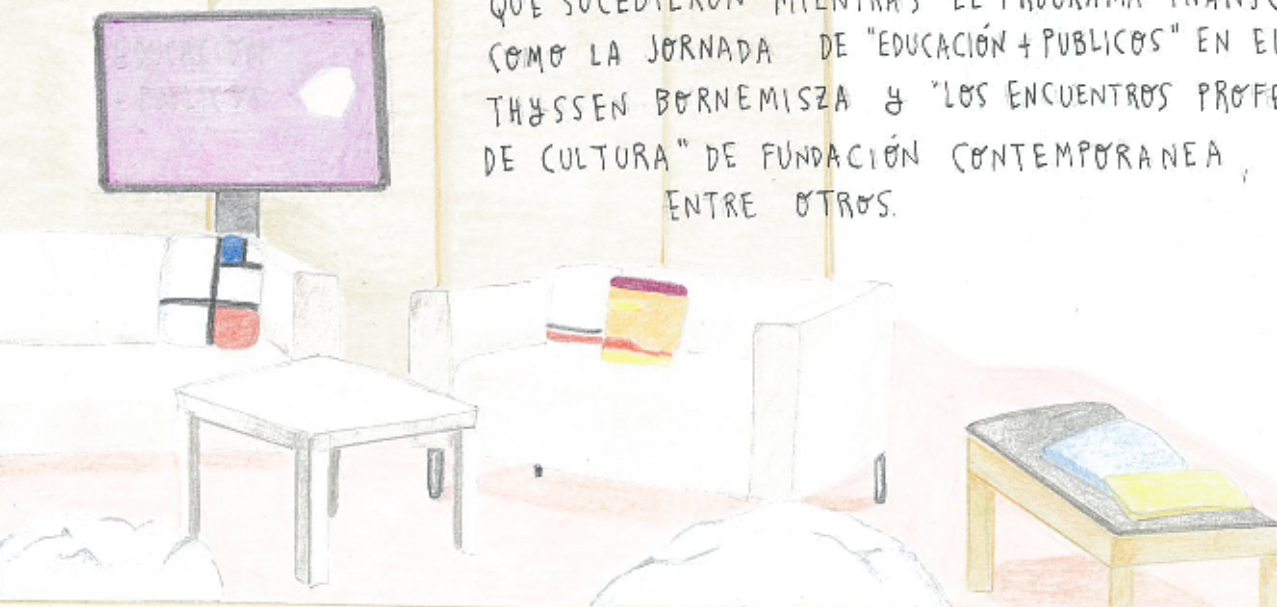 QUE SUCEDIERON MIENTRAS EL PROGRAMA
COMO LA JORNADA DE "EDUCACIÓN + PUBLICOS" EN EL
THYSSEN BORNEMISZA y "LOS ENCUENTROS PROFE
DE CULTURA" DE FUNDACIÓN CONTEMPORANEA,
ENTRE OTROS.
EDUCACIÓN
+ PUBLICOS